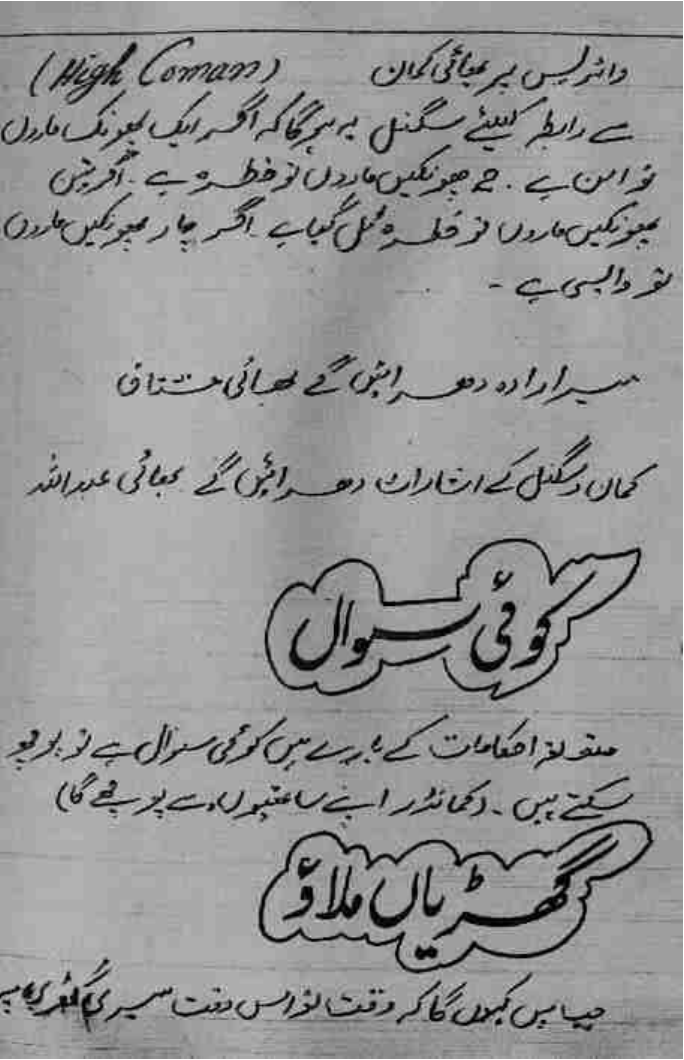 وائرلیس پر ہائی کمان (High Coman)
سے رابطہ کیلئے سگنل یہ ہوگا کہ اگر ایک پھونک ماروں
تو امن ہے ۔ 2 پھونکیں ماروں تو خطرہ ہے ۔ اگر تین
پھونکیں ماروں تو خطرہ ٹل گیا ہے ۔ اگر چار پھونکیں ماروں
تو واپسی ہے ۔
میرا ارادہ دھرائیں گے بھائی مشتاق
کمان و سگنل کے اشارات دھرائیں گے بھائی عبداللہ
کوئی سوال
متعلقہ احکامات کے بارے میں کوئی سوال ہے تو پوچھ
سکتے ہیں ۔ (کمانڈر اپنے ساتھیوں سے پوچھے گا)
گھڑیاں ملاؤ
جب میں کہوں گا کہ وقت تو اس وقت میری گھڑی پر